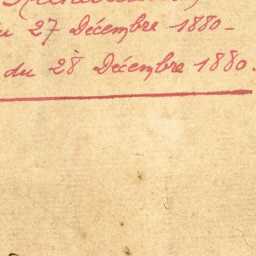 27 Décembre 1880 -
du 28 Décembre 1880.